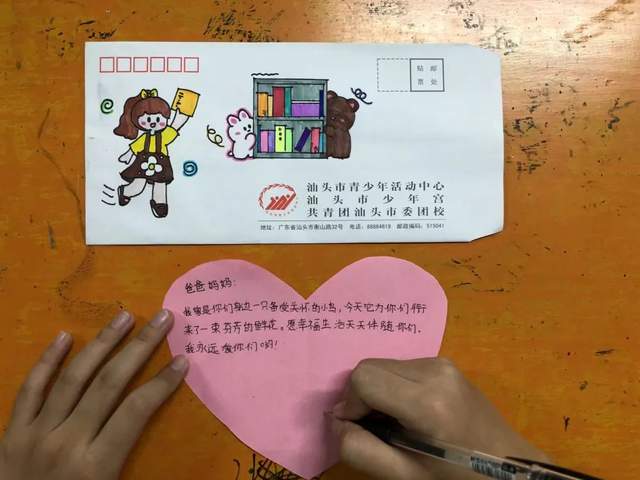 贴 邮
票 处
汕头市青少年活动中心
汕头市少年宫
共青团汕头市委团校
地址：广东省汕头市衡山路32号 电话：88884819 邮政编码：515041
爸爸妈妈：
我是你们身边一只备受关怀的小鸟，今天它为你们衔
来了一束芬芳的鲜花。愿幸福生活天天伴随你们。
我永远爱你们哟！